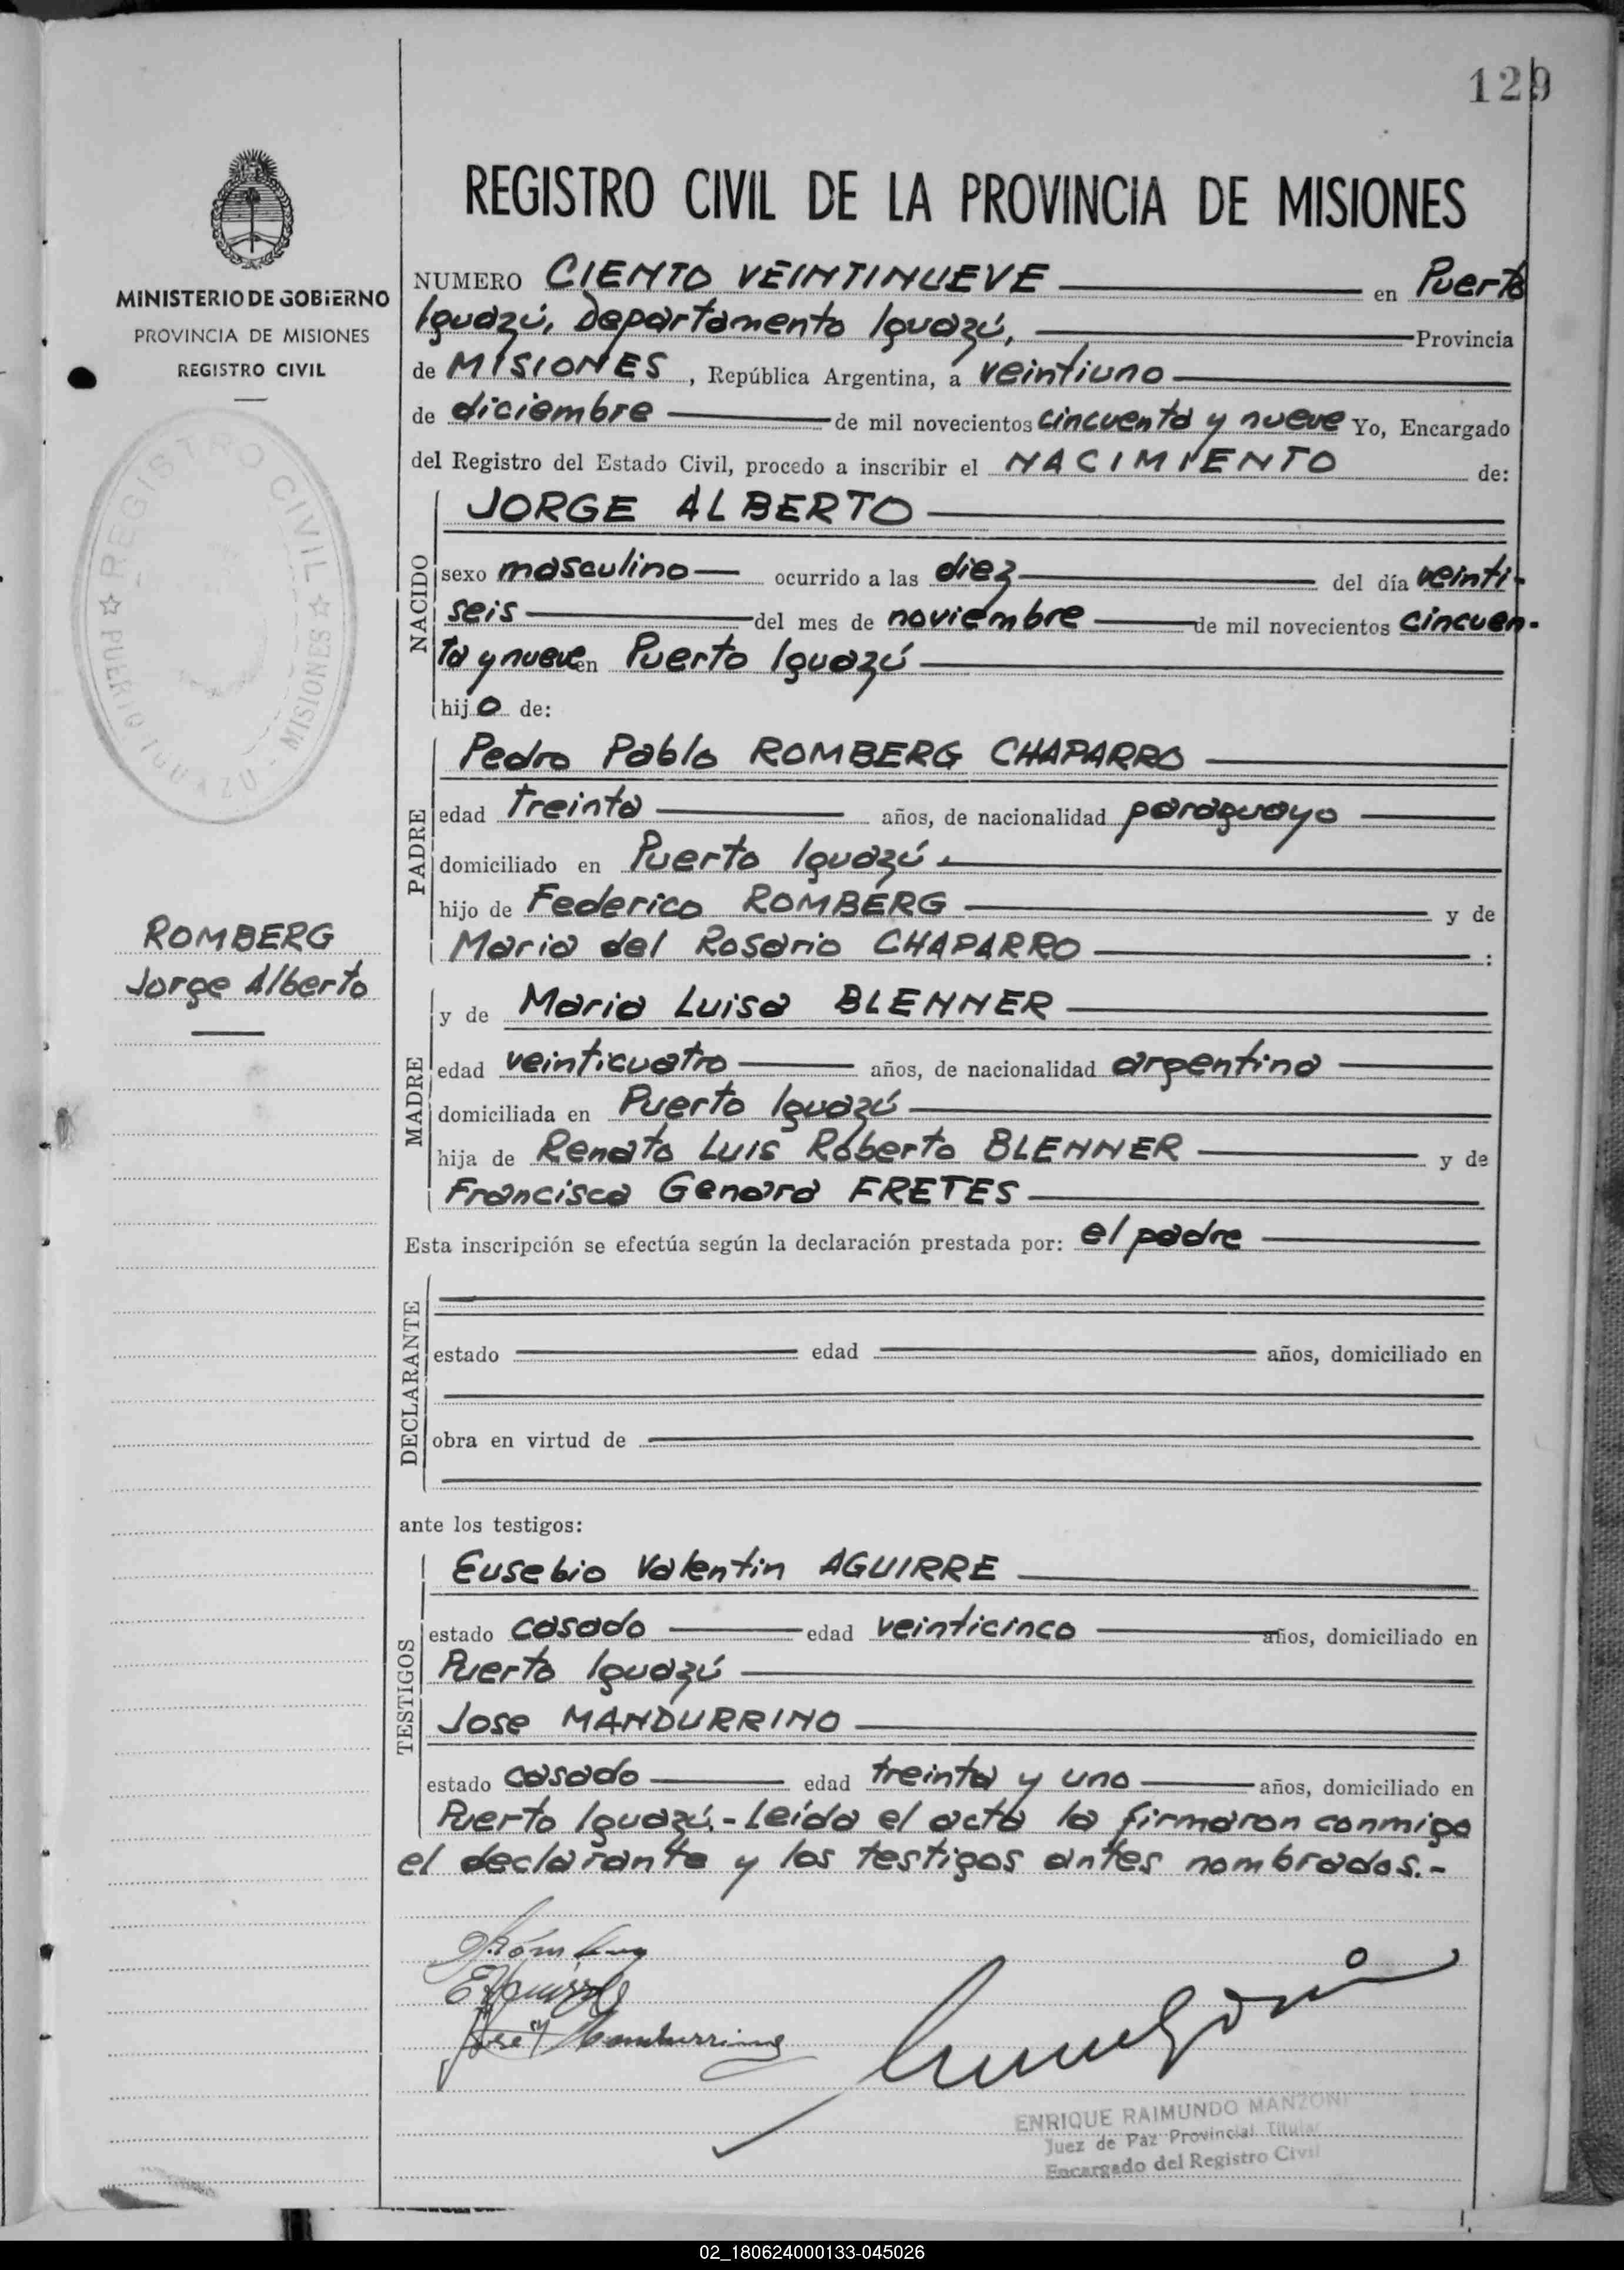 129
REGISTRO CIVIL DE LA PROVINCIA DE MISIONES
MINISTERIO DE GOBIERNO
PROVINCIA DE MISIONES
REGISTRO CIVIL
REGISTRO CIVIL
PUERTO IGUAZU - MISIONES
ROMBERG
Jorge Alberto
NUMERO CIENTO VEINTINUEVE en Puerto
Iguazú, Departamento Iguazú, Provincia
de MISIONES, República Argentina, a veintiuno
de diciembre de mil novecientos cincuenta y nueve Yo, Encargado
del Registro del Estado Civil, procedo a inscribir el NACIMIENTO de:
NACIDO
JORGE ALBERTO
sexo masculino ocurrido a las diez del día veinti-
seis del mes de noviembre de mil novecientos cincuen-
ta y nueve en Puerto Iguazú
hijo de:
PADRE
Pedro Pablo ROMBERG CHAPARRO
edad treinta años, de nacionalidad paraguayo
domiciliado en Puerto Iguazú.
hijo de Federico ROMBERG y de
Maria del Rosario CHAPARRO :
MADRE
y de Maria Luisa BLENNER
edad veinticuatro años, de nacionalidad argentina
domiciliada en Puerto Iguazú
hija de Renato Luis Roberto BLENNER y de
Francisca Genara FRETES
Esta inscripción se efectúa según la declaración prestada por: el padre
DECLARANTE
estado edad años, domiciliado en
obra en virtud de
ante los testigos:
TESTIGOS
Eusebio Valentin AGUIRRE
estado casado edad veinticinco años, domiciliado en
Puerto Iguazú
Jose MANDURRINO
estado casado edad treinta y uno años, domiciliado en
Puerto Iguazú.- Leída el acta la firmaron conmigo
el declarante y los testigos antes nombrados.-
José Mandurrino
ENRIQUE RAIMUNDO MANZONI
Juez de Paz Provincial Titular
Encargado del Registro Civil
02_180624000133-045026